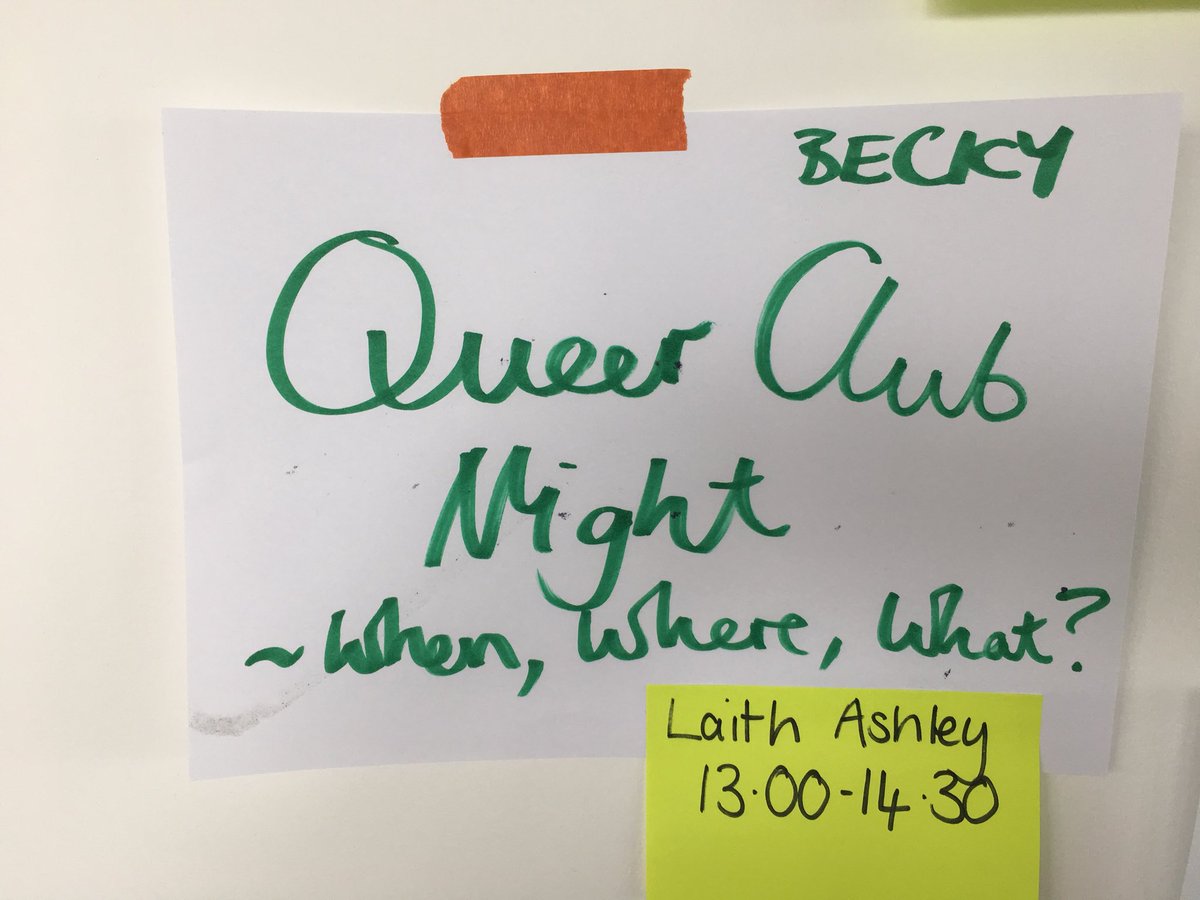 BECKY
Queer Club
Night
~ When, Where, What?
Laith Ashley
13.00-14.30